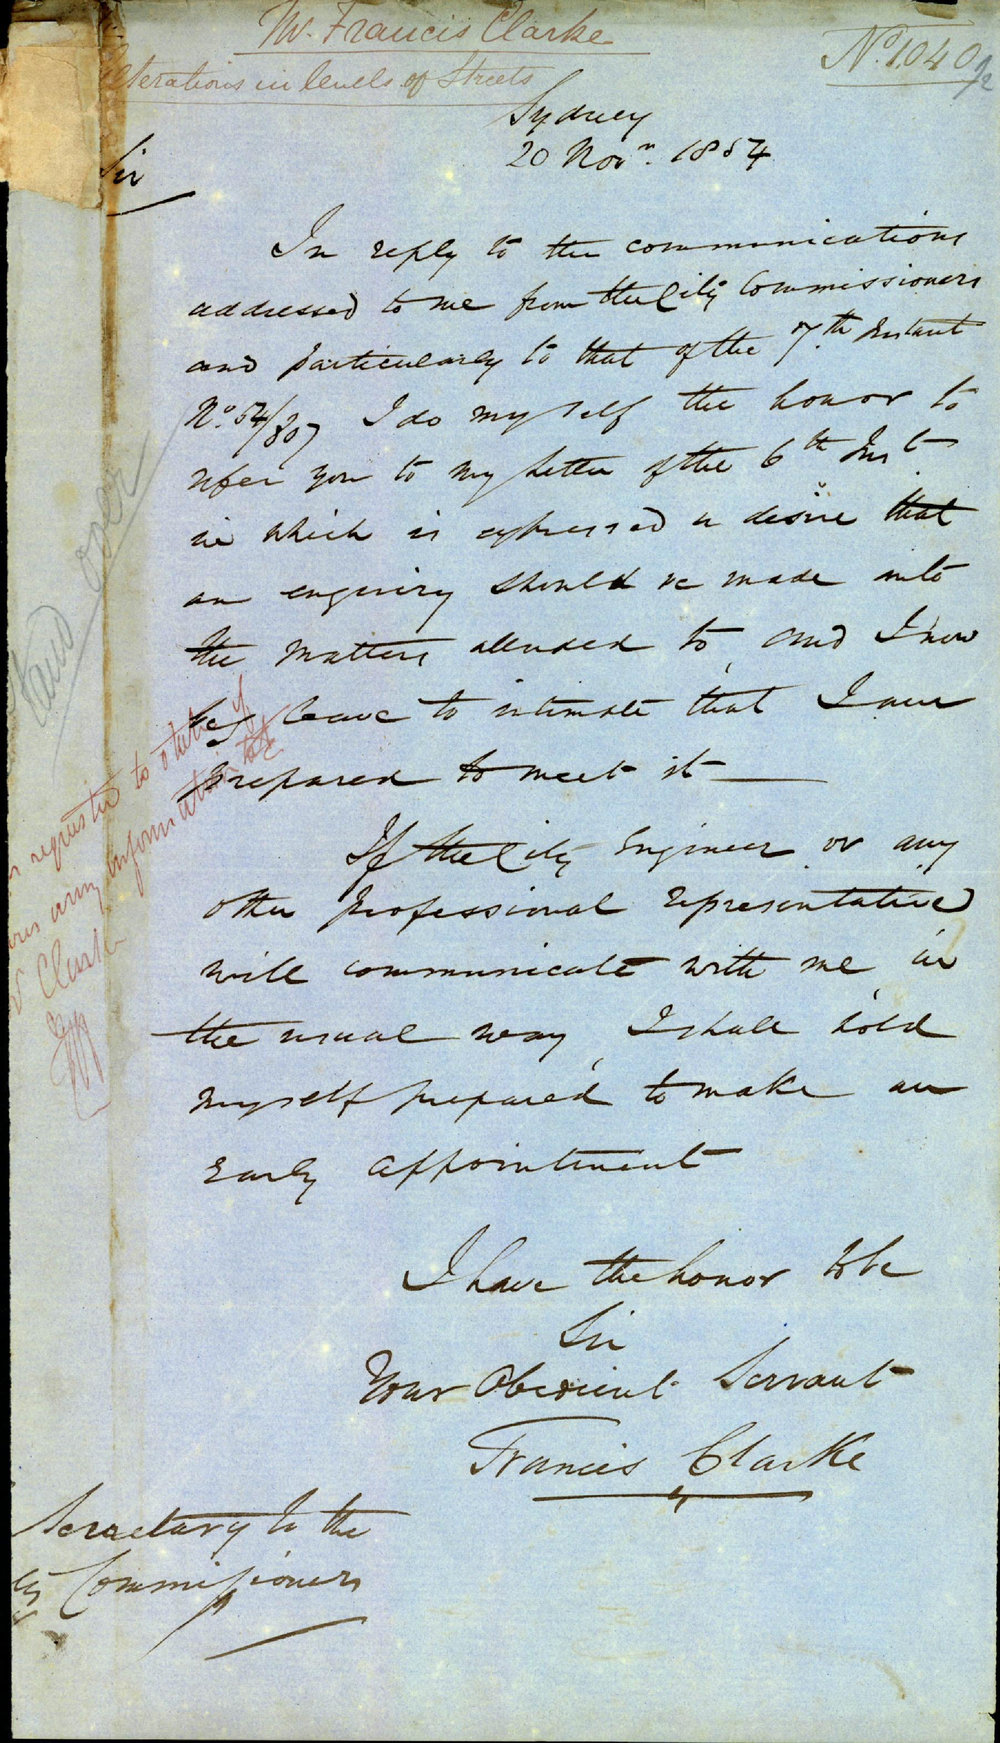 Mr. Francis Clarke
Alterations in levels of Streets
No. 1040 1/2
Sydney
20 Novr. 1854
Sir
In reply to the communications
addressed to me from the City Commissioners
and particularly to that of the 7th Instant
No. 54/807 I do myself the honor to
refer you to my letter of the 6th Inst
in which is expressed a desire that
an enquiry should be made into
the matters alluded to, and I now
beg leave to intimate that I am
prepared to meet it
If the City Engineer or any
other professional representative
will communicate with me in
the usual way, I shall hold
myself prepared to make an
early appointment
I have the honor to be
Sir
Your Obedient Servant
Francis Clarke
Secretary to the
City Commissioners
over
requested to state if
any information to
Clarke